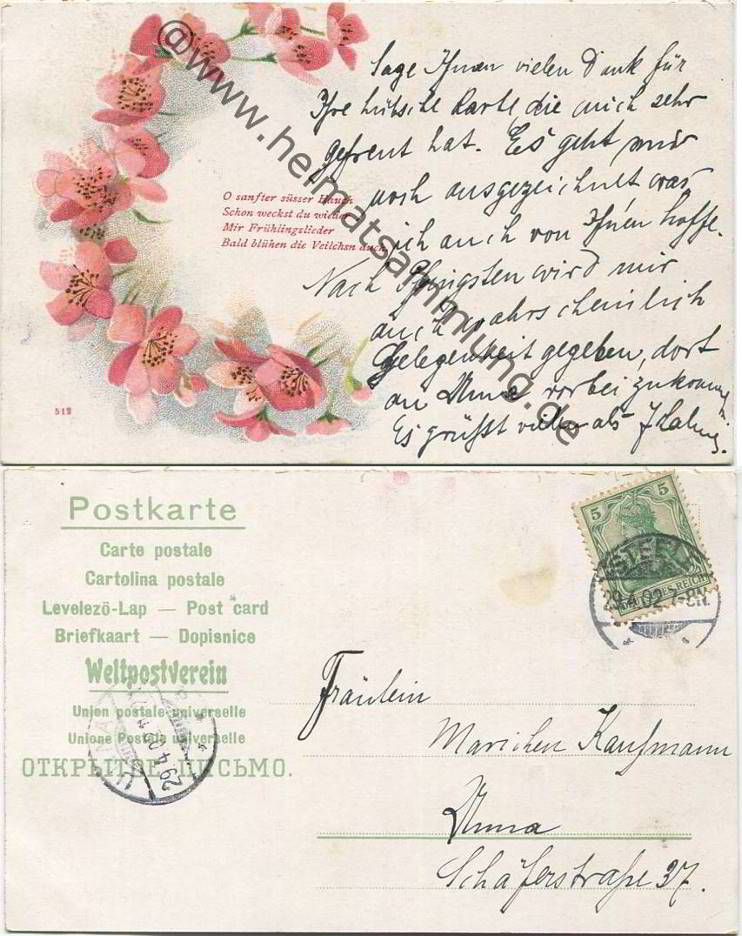 Sage Ihnen vielen Dank für
Ihre hübsche Karte, die mich sehr
gefreut hat. Es geht mir
noch ausgezeichnet was
ich auch von Ihnen hoffe.
Nach Pfingsten wird mir
auch wahrscheinlich
Gelegenheit gegeben, dort
an Unna vorbei zu kommen
Es grüßt
O sanfter süsser Hauch
Schon weckst du wieder
Mir Frühlingslieder
Bald blühen die Veilchsn auch
512
@www.heimatsammlung.de
Postkarte
Carte postale
Cartolina postale
Levelezö-Lap — Post card
Briefkaart — Dopisnice
Weltpostverein
Union postale universelle
Unione Postale universelle
ОТКРЫТОЕ ПИСЬМО.
5 5
DEUTSCHES REICH
STEELE
29.4.02.7-8N.
29.4.02
Fräulein
Mariechen Kaufmann
Unna
Schäferstraße 37.